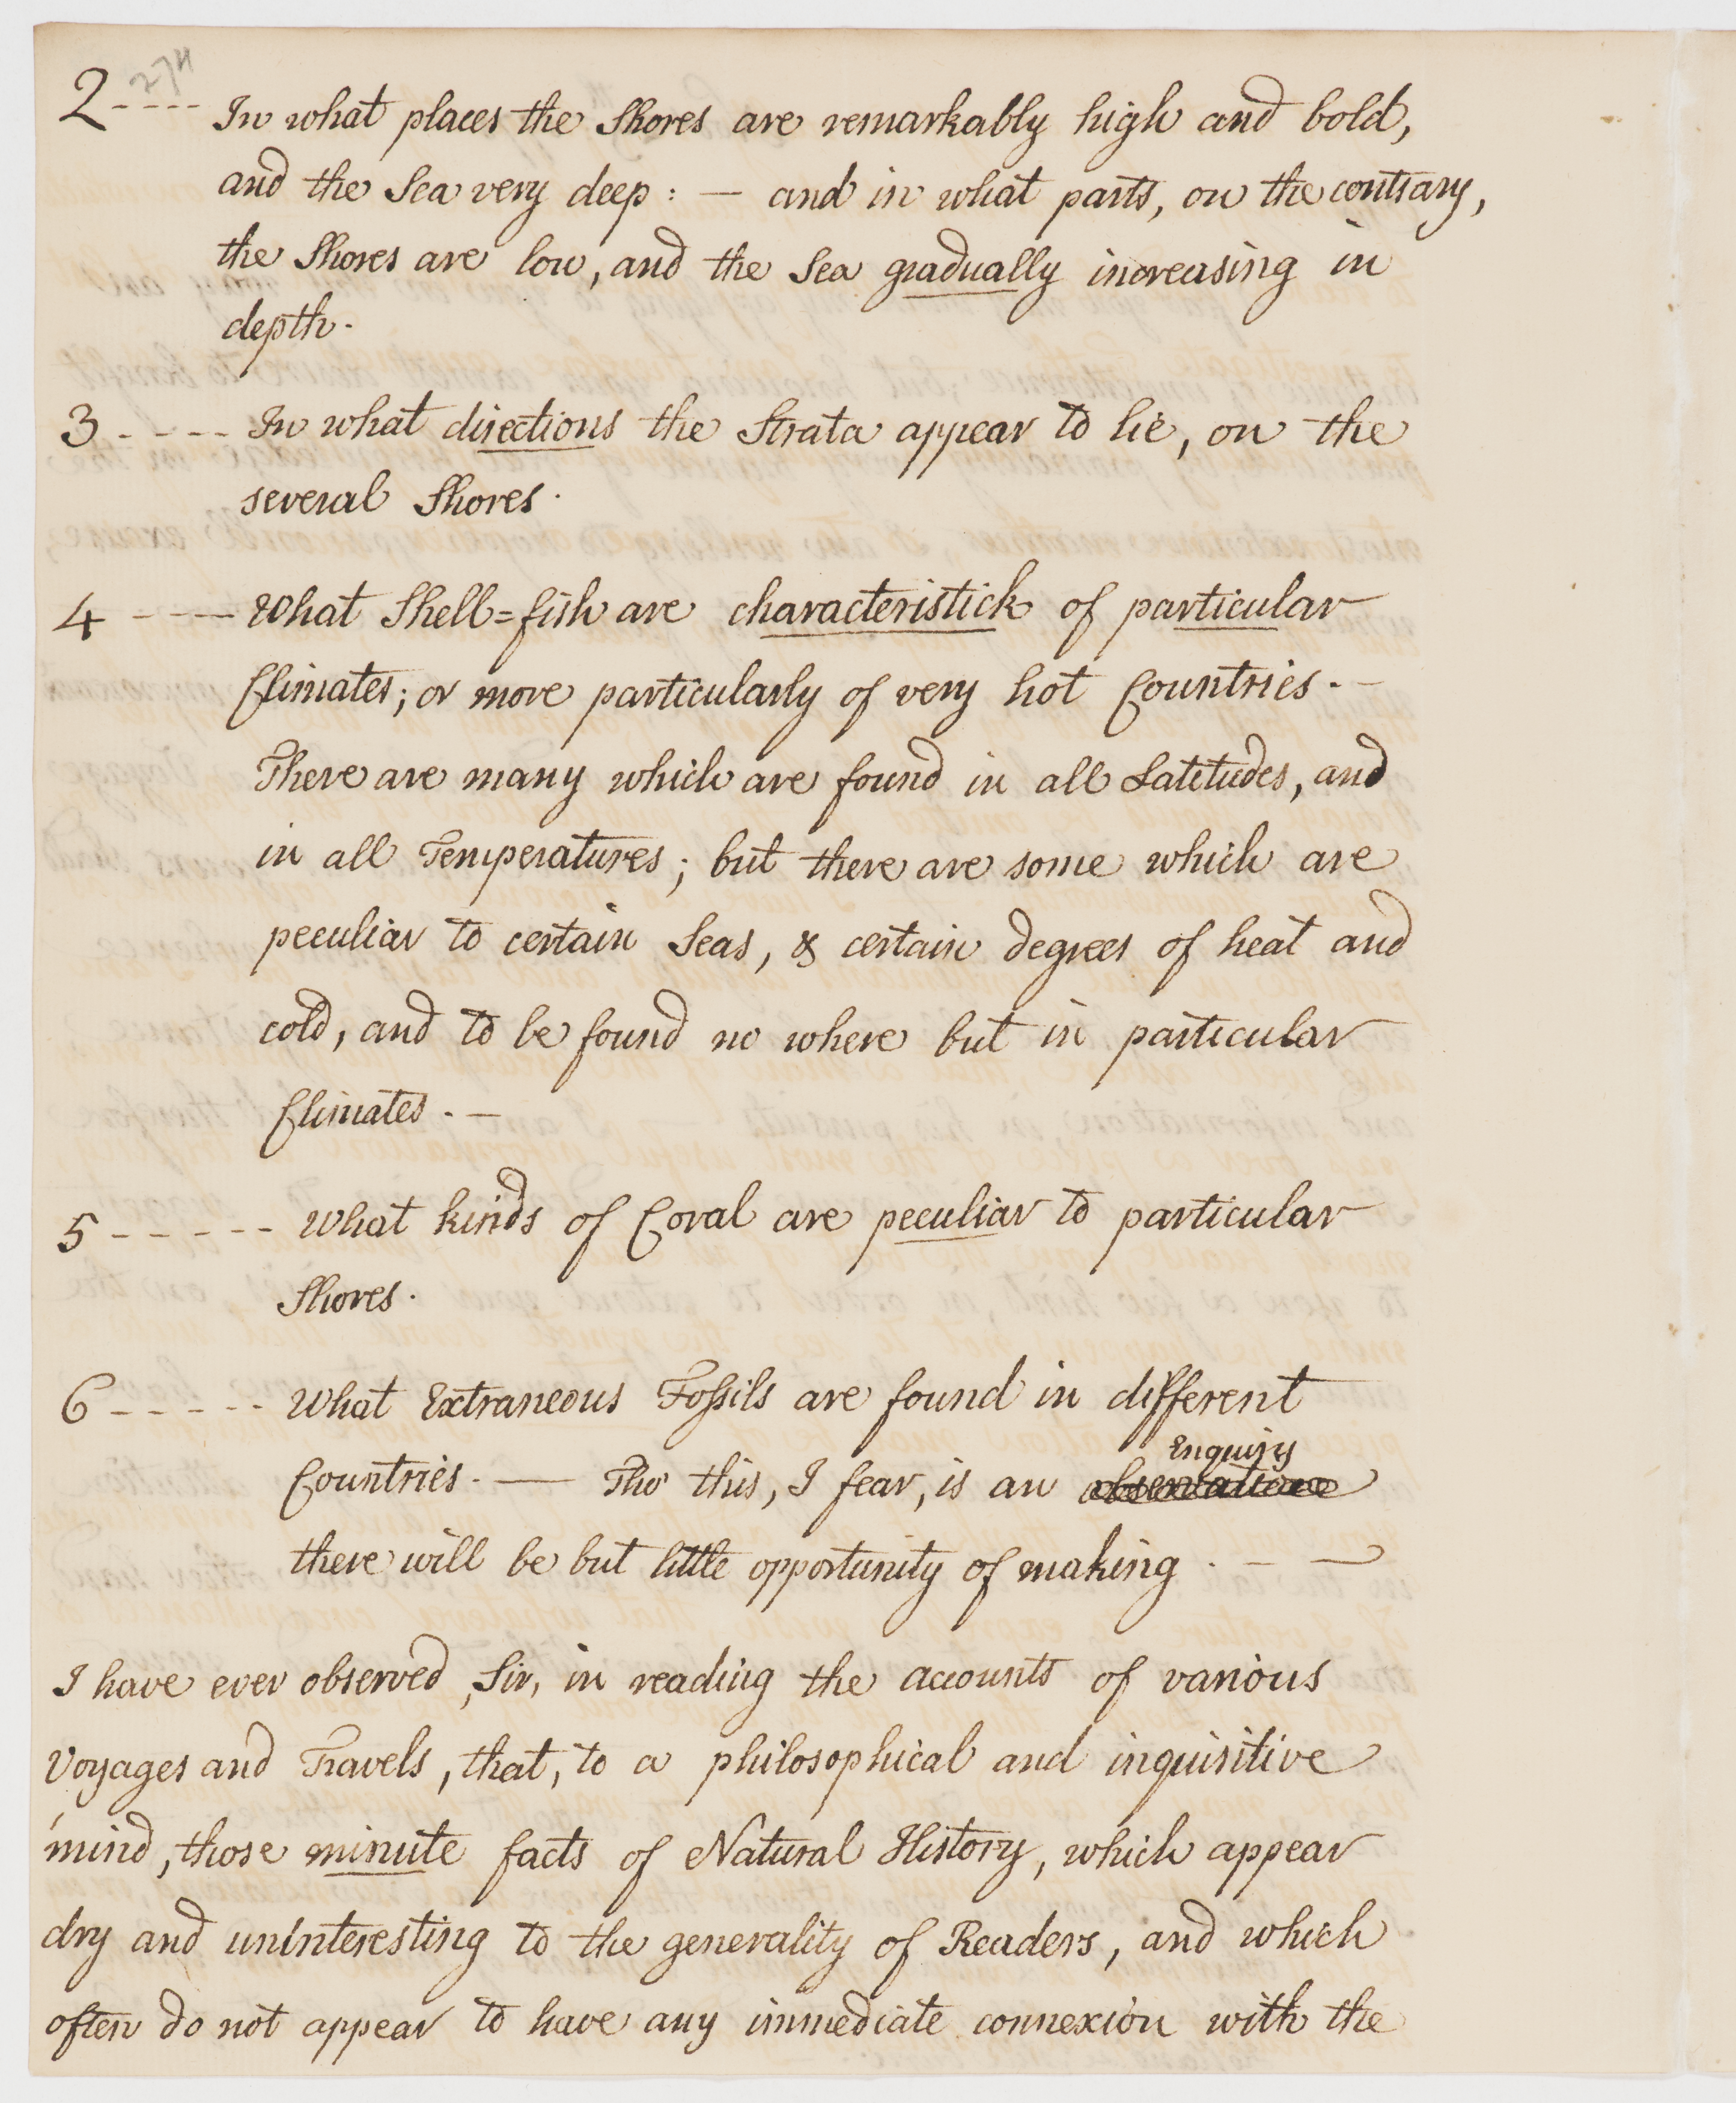 274
2 - - - - In what places the Shores are remarkably high and bold,
and the Sea very deep : — and in what parts, on the contrary,
the Shores are low, and the Sea gradually increasing in
depth.
3 - - - - In what directions the Strata appear to lie, on the
several Shores.
4 - - — What Shell=fish are characteristick of particular
Climates; or more particularly of very hot Countries. —
There are many which are found in all Latitudes, and
in all Temperatures; but there are some which are
peculiar to certain Seas, & certain degrees of heat and
cold, and to be found no where but in particular
Climates. —
5 - - - - - What kinds of Coral are peculiar to particular
Shores.
6 - - - - - What Extraneous Fossils are found in different
Enquiry
Countries. — Tho' this, I fear, is an observation
there will be but little opportunity of making . — —
I have ever observed, Sir, in reading the accounts of various
Voyages and Travels, that, to a philosophical and inquisitive
mind, those minute facts of Natural History, which appear
dry and uninteresting to the generality of Readers, and which
often do not appear to have any immediate connexion with the